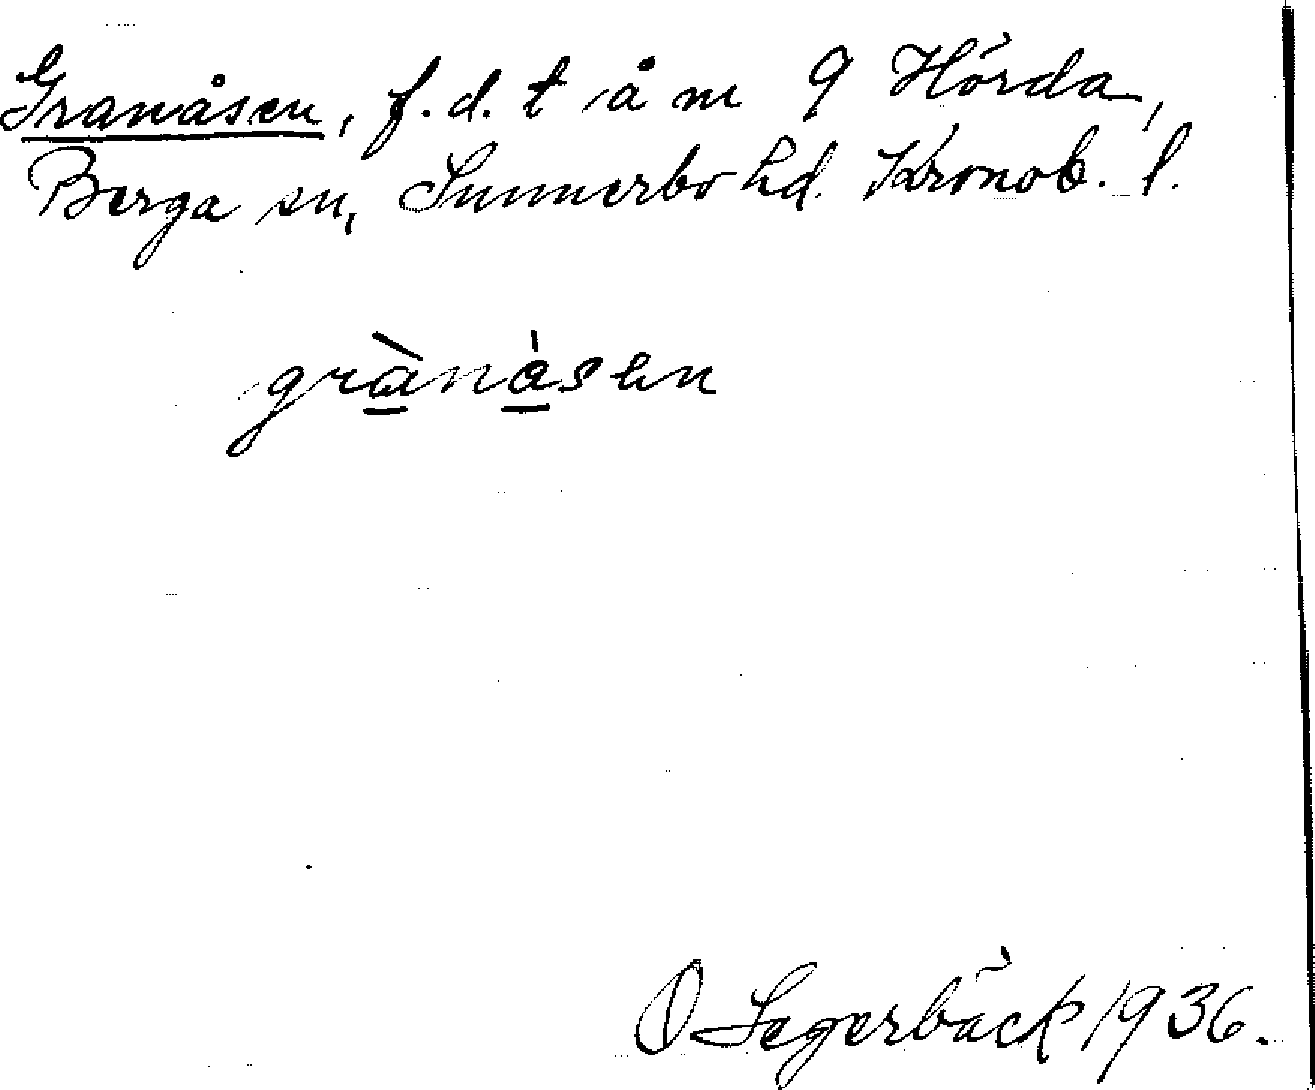 Granåsen, f.d. t å m 9 Hörda,
Berga sn, Sunnerbo hd. Kronob. l.
grànåsen
O Segerbäck 1936.